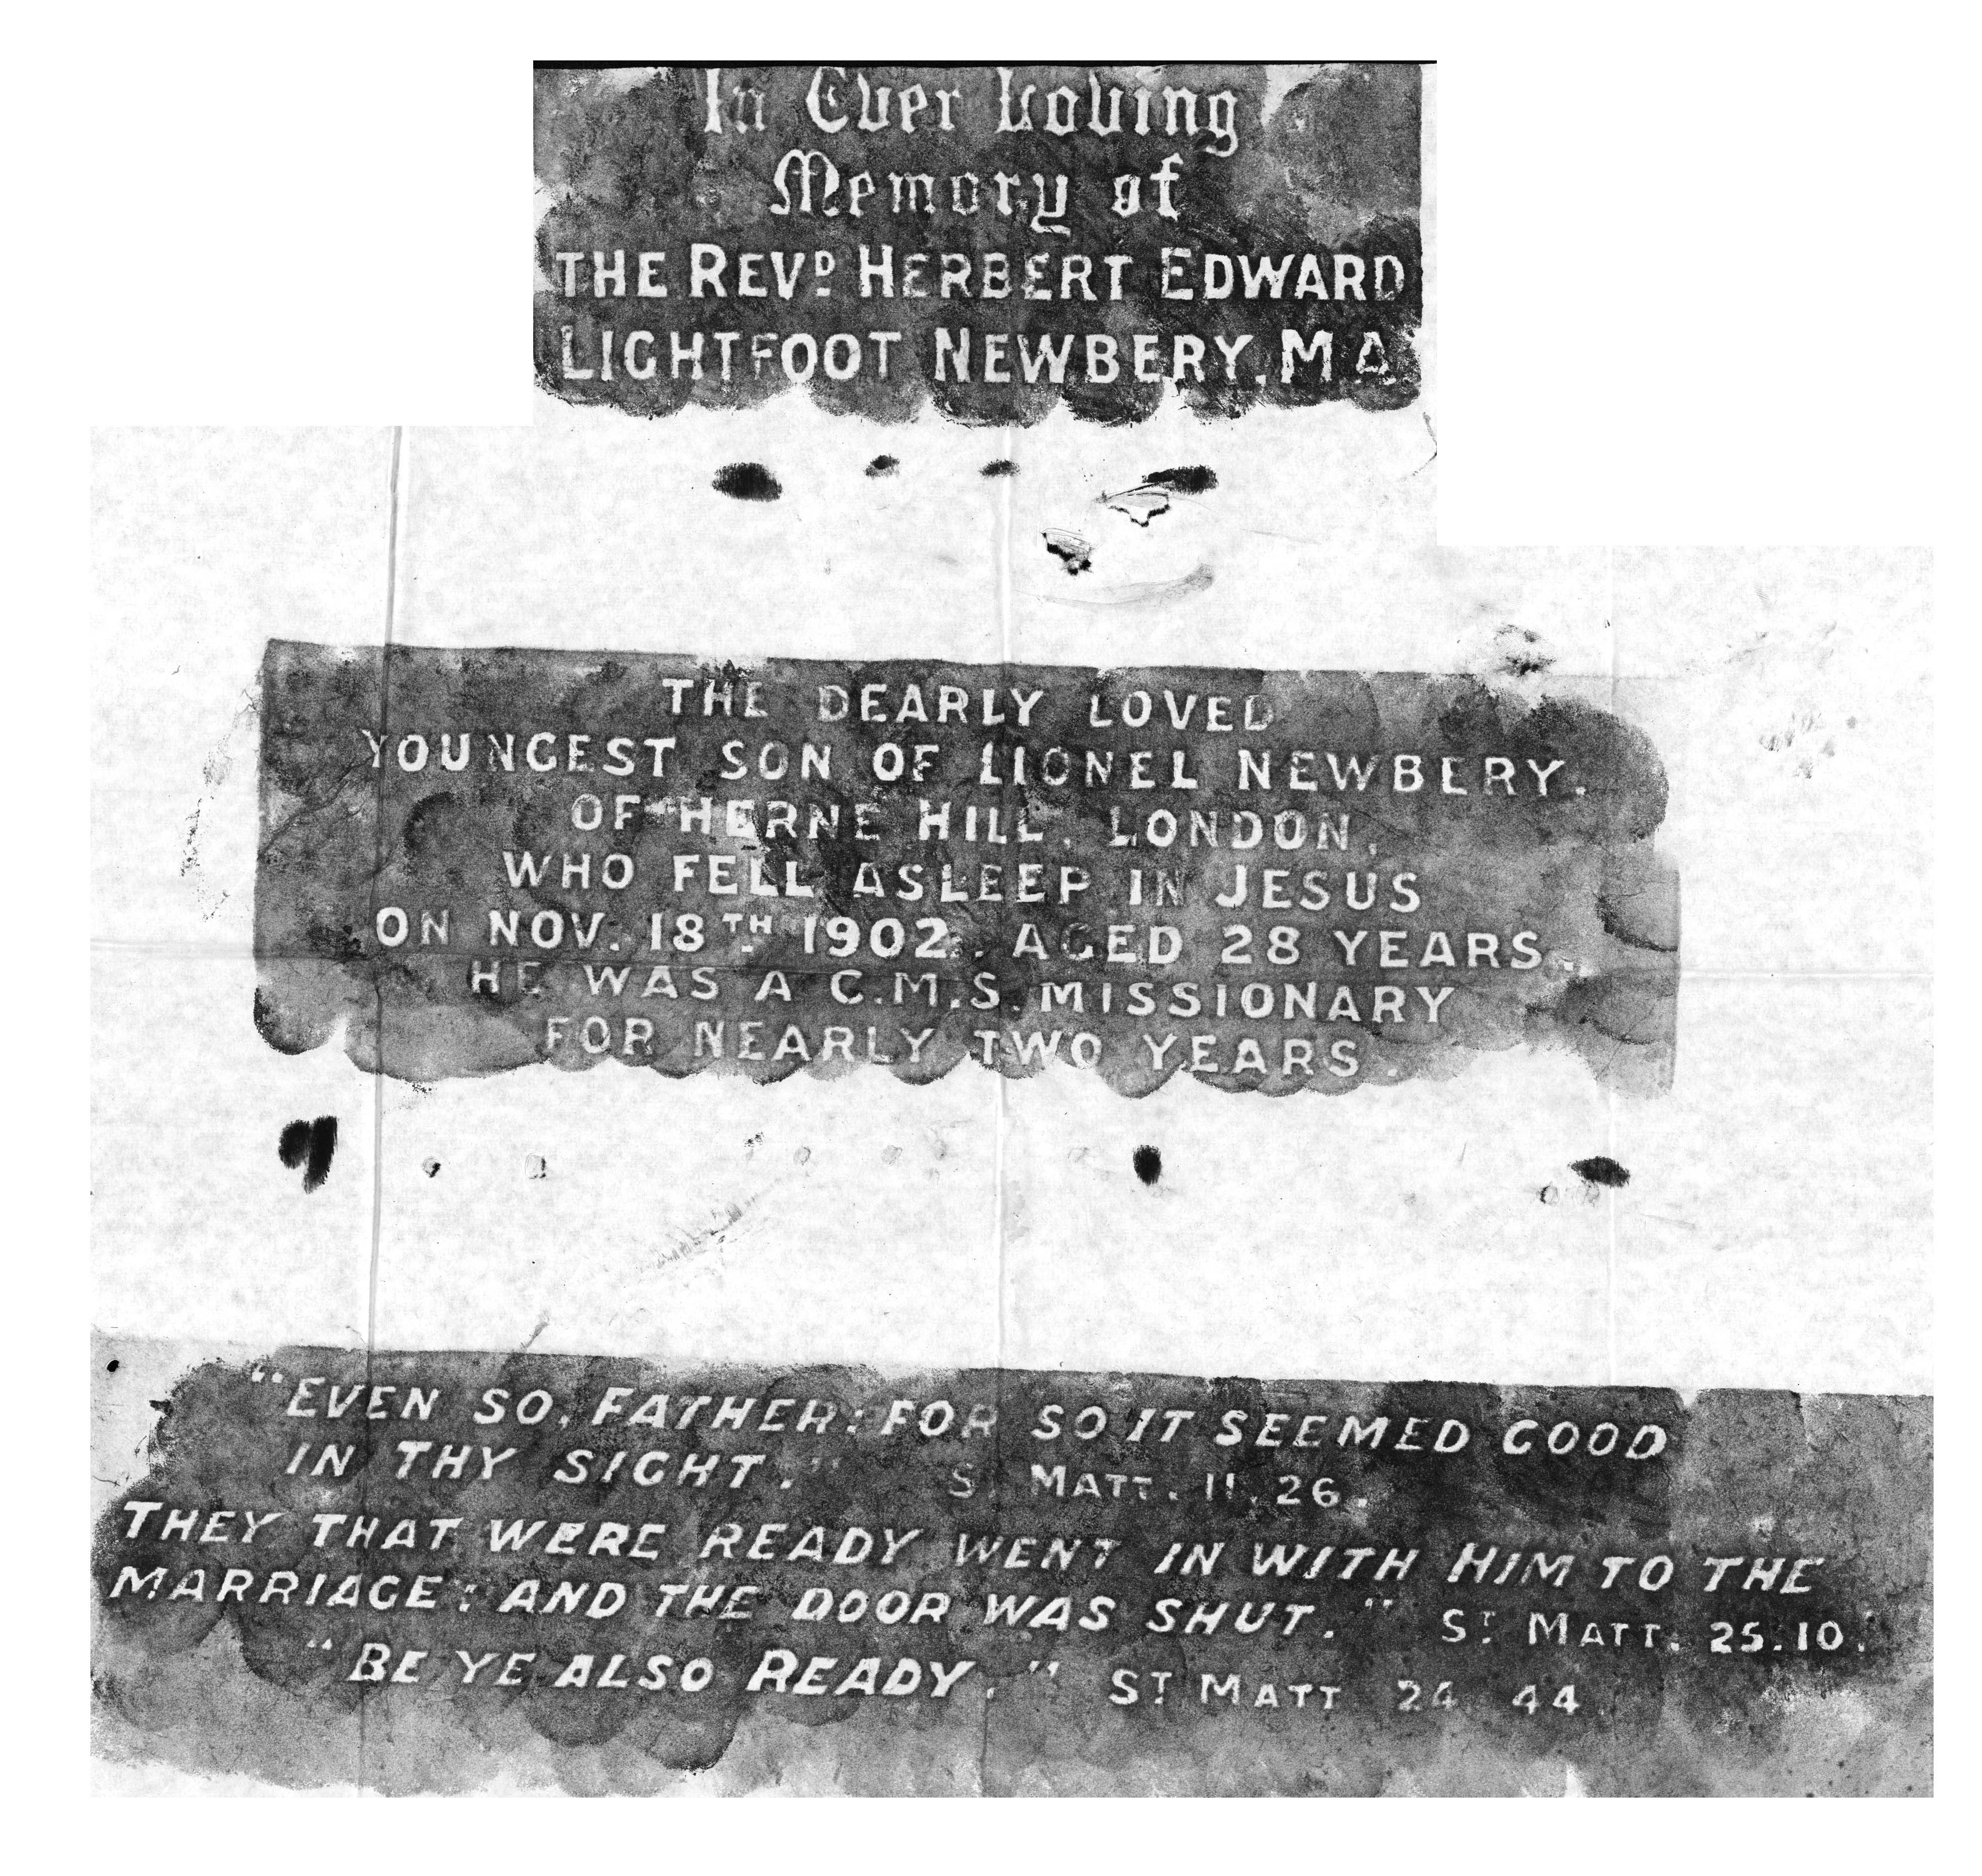 In Ever Loving
Memory of
THE REVD HERBERT EDWARD
LIGHTFOOT NEWBERY, M A
THE DEARLY LOVED
YOUNGEST SON OF LIONEL NEWBERY.
OF HERNE HILL, LONDON,
WHO FELL ASLEEP IN JESUS
ON NOV. 18TH 1902. AGED 28 YEARS.
HE WAS A C.M.S. MISSIONARY
FOR NEARLY TWO YEARS.
"EVEN SO, FATHER: FOR SO IT SEEMED GOOD
IN THY SIGHT." ST MATT. 11. 26.
THEY THAT WERE READY WENT IN WITH HIM TO THE
MARRIAGE: AND THE DOOR WAS SHUT." ST MATT. 25.10.
"BE YE ALSO READY." ST MATT 24 44